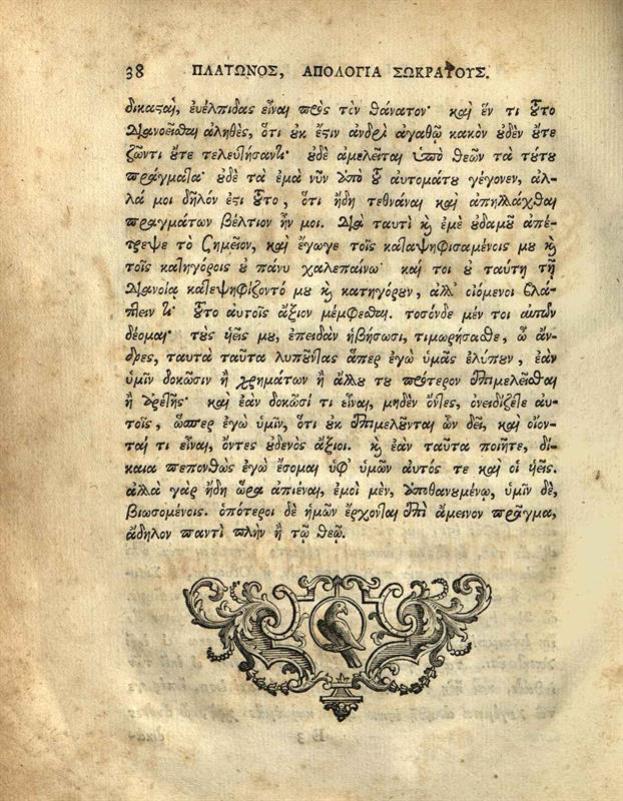 38 ΠΛΑΤΩΝΟΣ, ΑΠΟΛΟΓΙΑ ΣΩΚΡΑΤΟΥΣ.
δικαςαὶ, εὐέλπιδας εἶναι πρὸς τὸν θάνατον· καὶ ἕν τι ȣ̃το
διανοεῖσθαι ἀληθὲς, ὅτι ȣ̓κ ἔςιν ἀνδρὶ ἀγαθῷ κακὸν ȣ̓δὲν ȣ̓́τε
ζῶντι ȣ̓́τε τελευτήσαντι· ȣ̓δὲ ἀμελεῖται ὑπὸ θεῶν τὰ τȣ́τȣ
πράγματα· ȣ̓δὲ τὰ ἐμὰ νῦν ἀπὸ ȣ̃ αὐτομάτȣ γέγονεν, ἀλ-
λά μοι δῆλόν ἐςι ȣ̃το, ὅτι ἤδη τεθνάναι καὶ ἀπηλλάχθαι
πραγμάτων βέλτιον ἦν μοι. διὰ ταυτὶ ϗ ἐμὲ ȣ̓δαμȣ̃ ἀπέ-
τρεψε τὸ σημεῖον, καὶ ἔγωγε τοῖς καταψηφισαμένοις μȣ ϗ
τοῖς κατηγόροις ȣ̓ πάνυ χαλεπαίνω· καί τοι ȣ̓ ταύτη τῇ
διανοίᾳ κατεψηφίζοντό μȣ ϗ κατηγόρȣν, ἀλλ' οἰόμενοι βλά-
πτειν τι· ȣ̃το αὐτοῖς ἄξιον μέμφεσθαι. τοσόνδε μέν τοι αὐτῶν
δέομαι· τȣ̀ς ὑεῖς μȣ, ἐπειδὰν ἡβήσωσι, τιμωρήσασθε, ὦ ἄν-
δρες, ταυτὰ ταῦτα λυπȣ̃ντας ἅπερ ἐγὼ ὑμᾶς ἐλύπȣν, ἐὰν
ὑμῖν δοκῶσιν ἢ χρημάτων ἢ ἄλλȣ τȣ πρότερον ἐπιμελεῖσθαι
ἢ ἀρετῆς· καὶ ἐὰν δοκῶσί τι εἶναι, μηδὲν ὄντες, ὀνειδίζετε αὐ-
τοῖς, ὥσπερ ἐγὼ ὑμῖν, ὅτι ȣ̓κ ἐπιμελȣ̃νται ὧν δεῖ, καὶ οἴον-
ταί τι εἶναι, ὄντες ȣ̓δενὸς ἄξιοι. ϗ ἐὰν ταῦτα ποιῆτε, δί-
καια πεπονθὼς ἐγὼ ἔσομαι ὑφ' ὑμῶν αὐτός τε καὶ οἱ ὑεῖς.
ἀλλὰ γὰρ ἤδη ὥρα ἀπιέναι, ἐμοὶ μὲν, ἀποθανουμένῳ, ὑμῖν δὲ,
βιωσομένοις. ὁπότεροι δὲ ἡμῶν ἔρχονται ἐπὶ ἄμεινον πρᾶγμα,
ἄδηλον παντὶ πλὴν ἢ τῷ θεῷ.